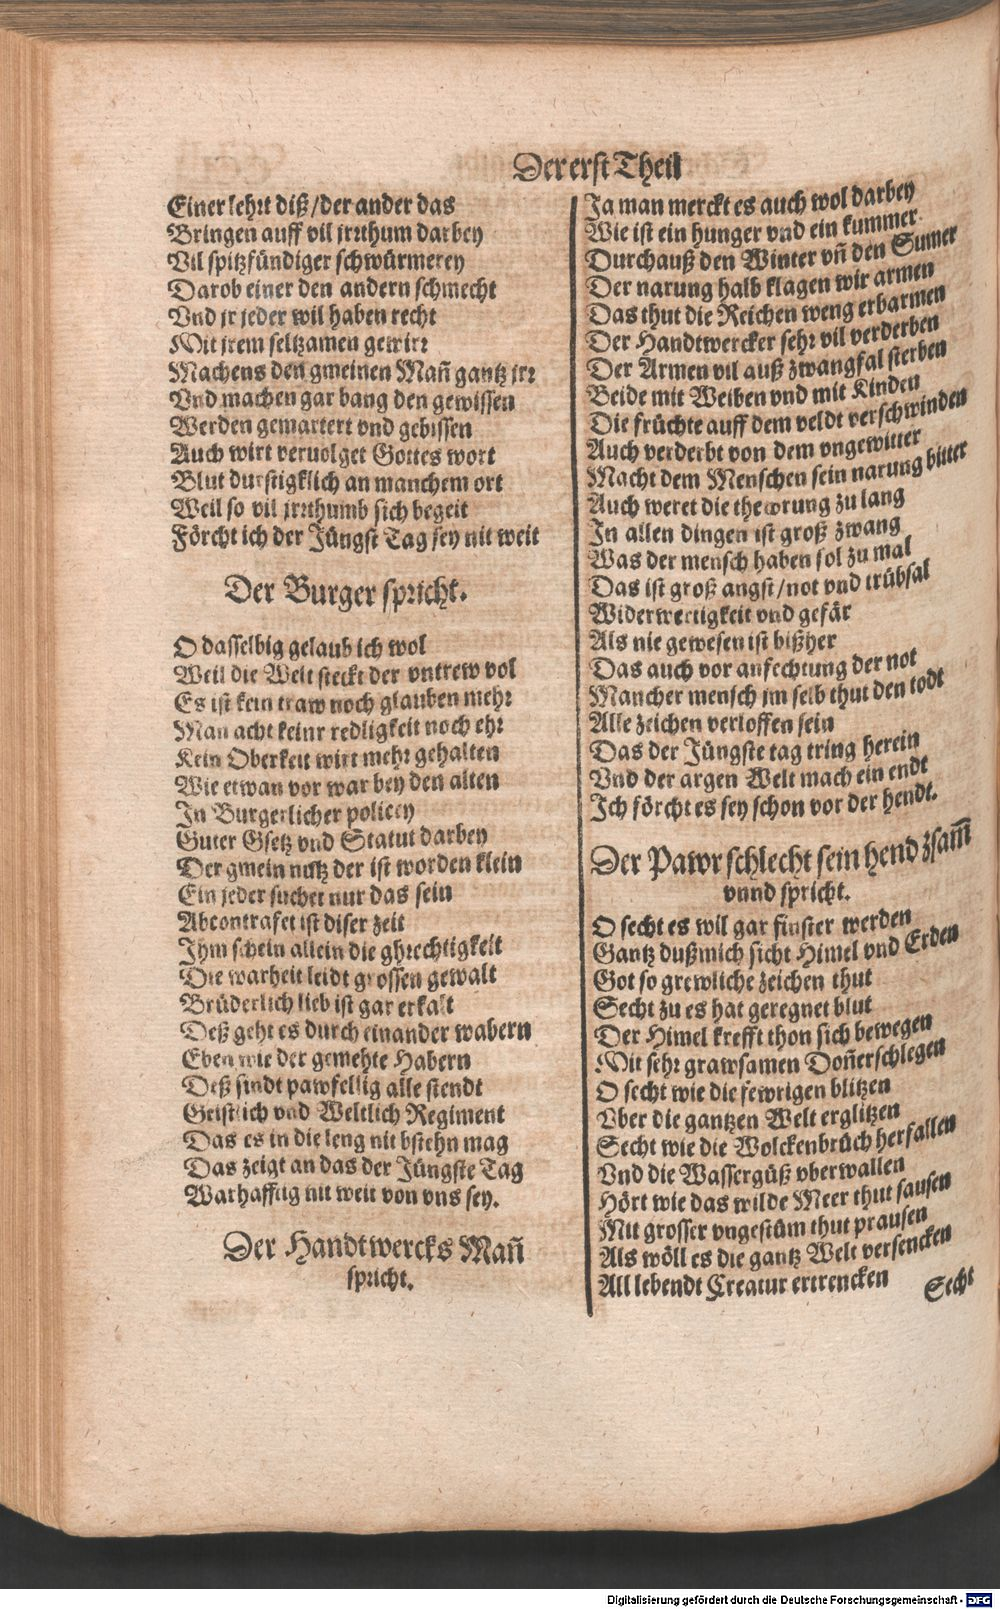 Der erst Theil
Einer lehrt diß/der ander das
Bringen auff vil jrrthum darbey
Vil spitzfündiger schwürmerey
Darob einer den andern schmecht
Vnd jr jeder wil haben recht
Mit jrem seltzamen gewirr
Machens den gmeinen Mañ gantz jrr
Vnd machen gar bang den gewissen
Werden gemartert vnd gebissen
Auch wirt veruolget Gottes wort
Blut durstigklich an manchem ort
Weil so vil jrrthumb sich begeit
Förcht ich der Jüngst Tag sey nit weit
Der Burger spricht.
O dasselbig gelaub ich wol
Weil die Welt steckt der vntrew vol
Es ist kein traw noch glauben mehr
Man acht keinr redligkeit noch ehr
Kein Oberkeit wirt mehr gehalten
Wie etwan vor war bey den alten
In Burgerlicher policey
Guter Gsetz vnd Statut darbey
Der gmein nutz der ist worden klein
Ein jeder suchet nur das sein
Abcontrafet ist diser zeit
Ihm schein allein die ghrechtigkeit
Die warheit leidt grossen gewalt
Brüderlich lieb ist gar erkalt
Deß geht es durch einander wabern
Eben wie der gemehte Habern
Deß sindt pawfellig alle stendt
Geistlich vnd Weltlich Regiment
Das es in die leng nit bstehn mag
Das zeigt an das der Jüngste Tag
Warhafftig nit weit von vns sey.
Der Handtwercks Mañ
spricht.
Ja man merckt es auch wol darbey
Wie ist ein hunger vnd ein kummer
Durchauß den Winter vñ den Sumer
Der narung halb klagen wir armen
Das thut die Reichen weng erbarmen
Der Handtwercker sehr vil verderben
Der Armen vil auß zwangsal sterben
Beide mit Weiben vnd mit Kinden
Die früchte auff dem veldt verschwinden
Auch verderbt von dem vngewitter
Macht dem Menschen sein narung bitter
Auch weret die thewrung zu lang
In allen dingen ist groß zwang
Was der mensch haben sol zu mal
Das ist groß angst/not vnd trübsal
Widerwertigkeit vnd gefär
Als nie gewesen ist bißher
Das auch vor anfechtung der not
Mancher mensch jm selb thut den todt
Alle zeichen verloffen sein
Das der Jüngste tag tring herein
Vnd der argen Welt mach ein endt
Ich förcht es sey schon vor der hendt.
Der Pawr schlecht sein hend zsam̃
vnnd spricht.
O secht es wil gar finster werden
Gantz dußmich sicht Himel vnd Erden
Got so grewliche zeichen thut
Secht zu es hat geregnet blut
Der Himel krefft thon sich bewegen
Mit sehr grawsamen Doñerschlegen
O secht wie die fewrigen blitzen
Vber die gantzen Welt erglitzen
Secht wie die Wolckenbrüch herfallen
Vnd die Wassergüß vberwallen
Hört wie das wilde Meer thut sausen
Mit grosser vngestüm thut prausen
Als wöll es die gantz Welt versencken
All lebendt Creatur ertrencken
Secht
Digitalisierung gefördert durch die Deutsche Forschungsgemeinschaft - DFG